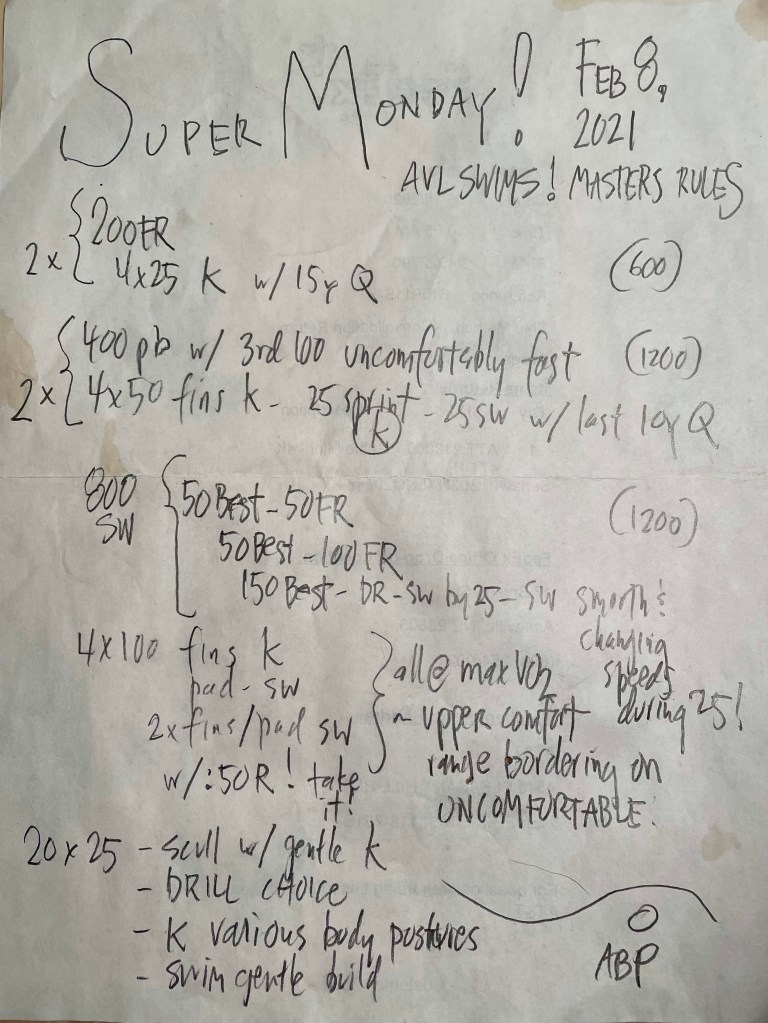 SUPER MONDAY! FEB 8, 2021
AVL SWIMS! MASTERS RULES
2x { 200 FR
4x25 K w/ 15y Q (600)
2x { 400 pb w/ 3rd 100 uncomfortably fast (1200)
4x50 fins k - 25 sprint k - 25 sw w/ last 10y Q
800 SW { 50 Best - 50 FR (1200)
50 Best - 100 FR
150 Best - DR - SW by 25 - SW smooth & changing speeds during 25!
4x100 fins k
pad - sw
2x fins/pad sw
w/:50R! take it!
} all @ max VO2
~ upper comfort
range bordering on
UNCOMFORTABLE!
20x25 - scull w/ gentle k
- DRILL CHOICE
- K various body postures
- swim gentle build
ABP